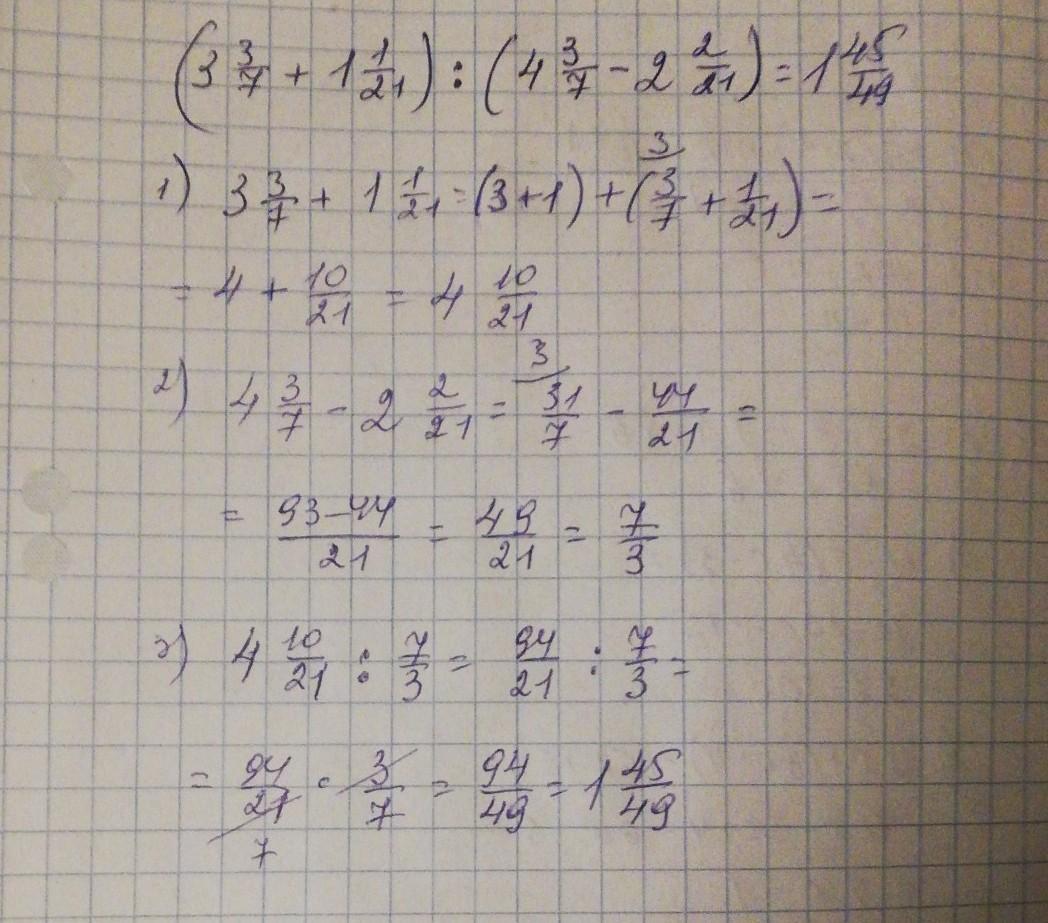 (3 3/7 + 1 1/21) : (4 3/7 - 2 2/21) = 1 45/49
3
1) 3 3/7 + 1 1/21 = (3 + 1) + (3/7 + 1/21) =
= 4 + 10/21 = 4 10/21
3
2) 4 3/7 - 2 2/21 = 31/7 - 44/21 =
= 93-44/21 = 49/21 = 7/3
3) 4 10/21 : 7/3 = 94/21 : 7/3 =
= 94/21 · 3/7 = 94/49 = 1 45/49
7